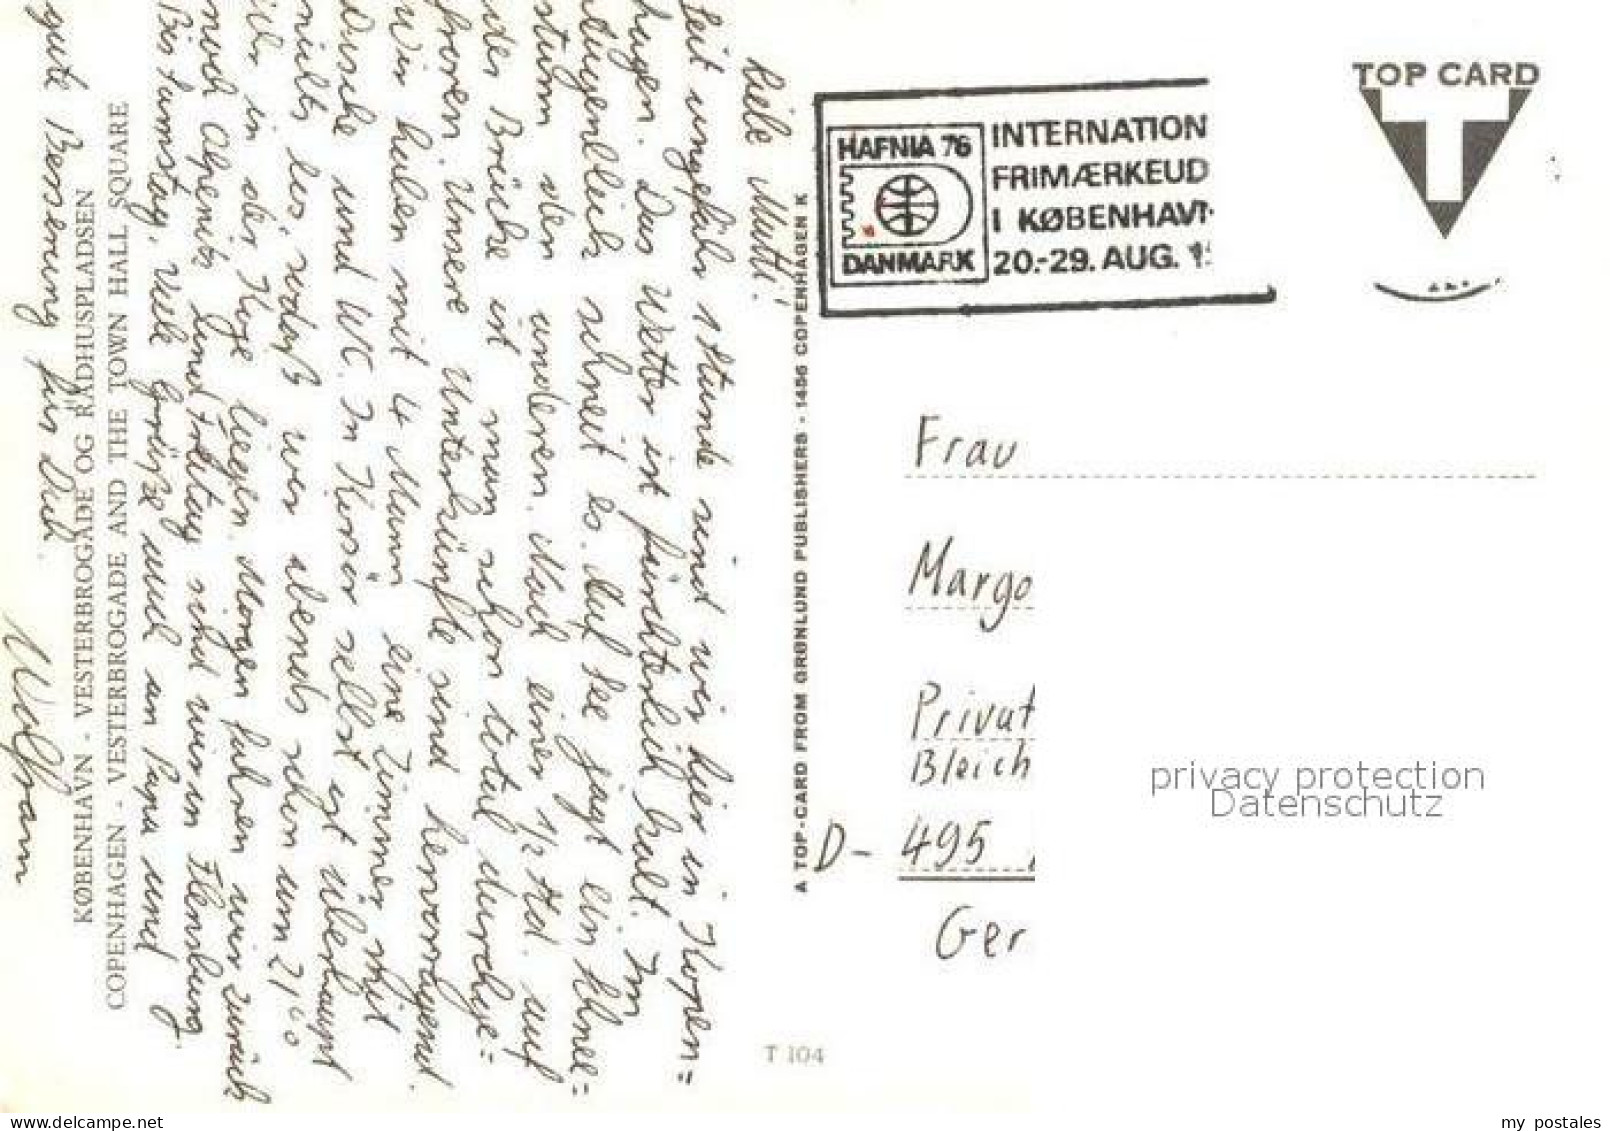 Liebe Mutti!
Seit ungefähr 1 Stunde sind wir hier in Kopen=
hagen. Das Wetter ist fürchterlich kalt. Im
Augenblick schneit es. Auf See jagt ein Schnee=
sturm den anderen. Nach einer 1/2 Std. auf
der Brücke ist man schon total durchge=
froren. Unsere Unterkünfte sind hervorragend.
Wir haben mit 4 Mann eine Zimmer mit
Dusche und WC. In Korsör selbst ist überhaupt
nichts los, sodaß wir abends schon um 21⁰⁰
in der Koje liegen. Morgen fahren wir zurück
nach und Freitag sind wir in Flensburg.
Bis Samstag, viele Grüße auch an Papa und
gute Besserung für Dich.
Wolfram
KØBENHAVN - VESTERBROGADE OG RÅDHUSPLADSEN
COPENHAGEN - VESTERBROGADE AND THE TOWN HALL SQUARE
A TOP-CARD FROM GRØNLUND PUBLISHERS - 1456 COPENHAGEN K
T 104
HAFNIA 76
DANMARK
INTERNATION
FRIMÆRKEUD
I KØBENHAVN
20.-29. AUG. 1
TOP CARD
Frau
Margo
Privat
Bleich
D- 495
Ger
privacy protection
Datenschutz
my postales
www.delcampe.net